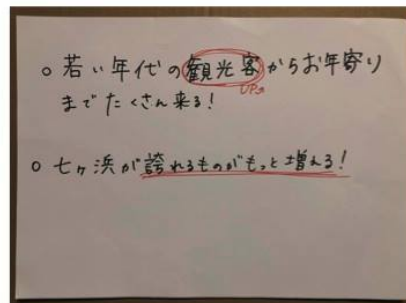 ○ 若い年代の観光客からお年寄り
UP↗
までたくさん来る!
○ 七ヶ浜が誇れるものがもっと増える!